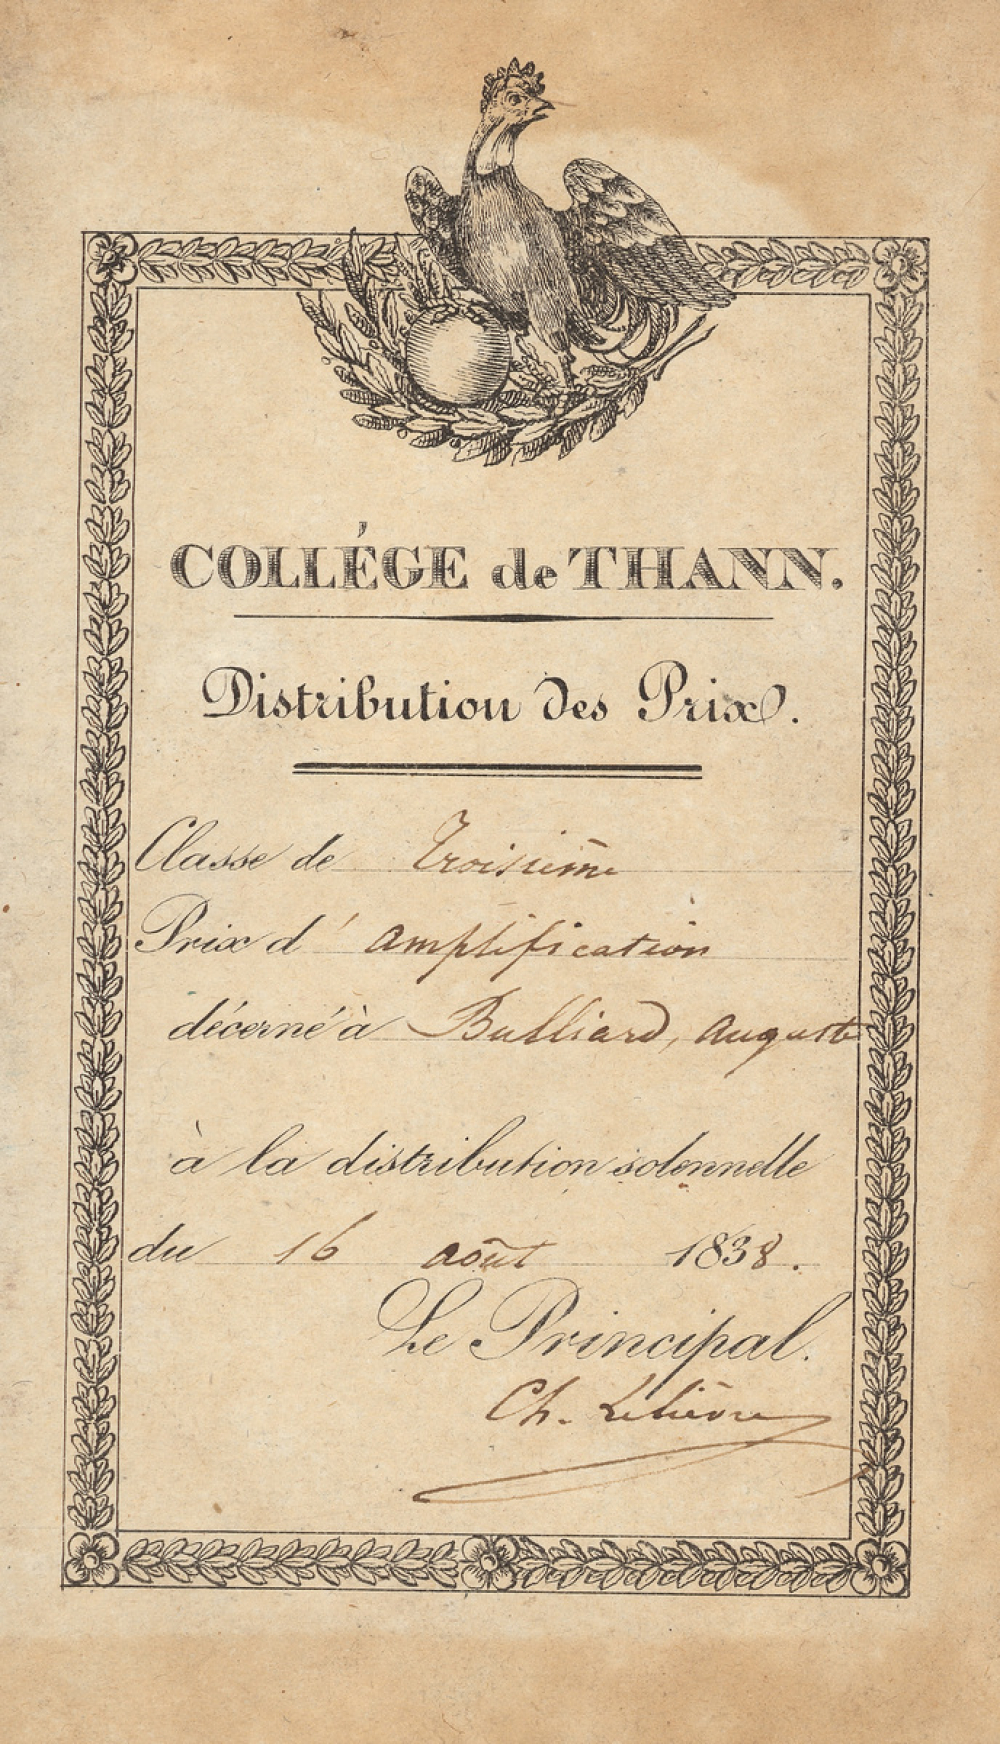 COLLÉGE de THANN.
Distribution des Prix.
Classe de Troisième
Prix d' amplification
décerné à Bulliard, auguste
à la distribution solennelle
du 16 août 1838.
Le Principal.
Ch. Lelièvre